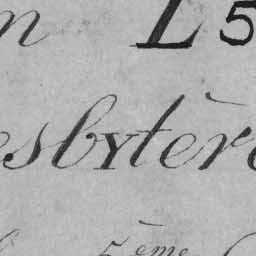 n L5
esbytère
5ème